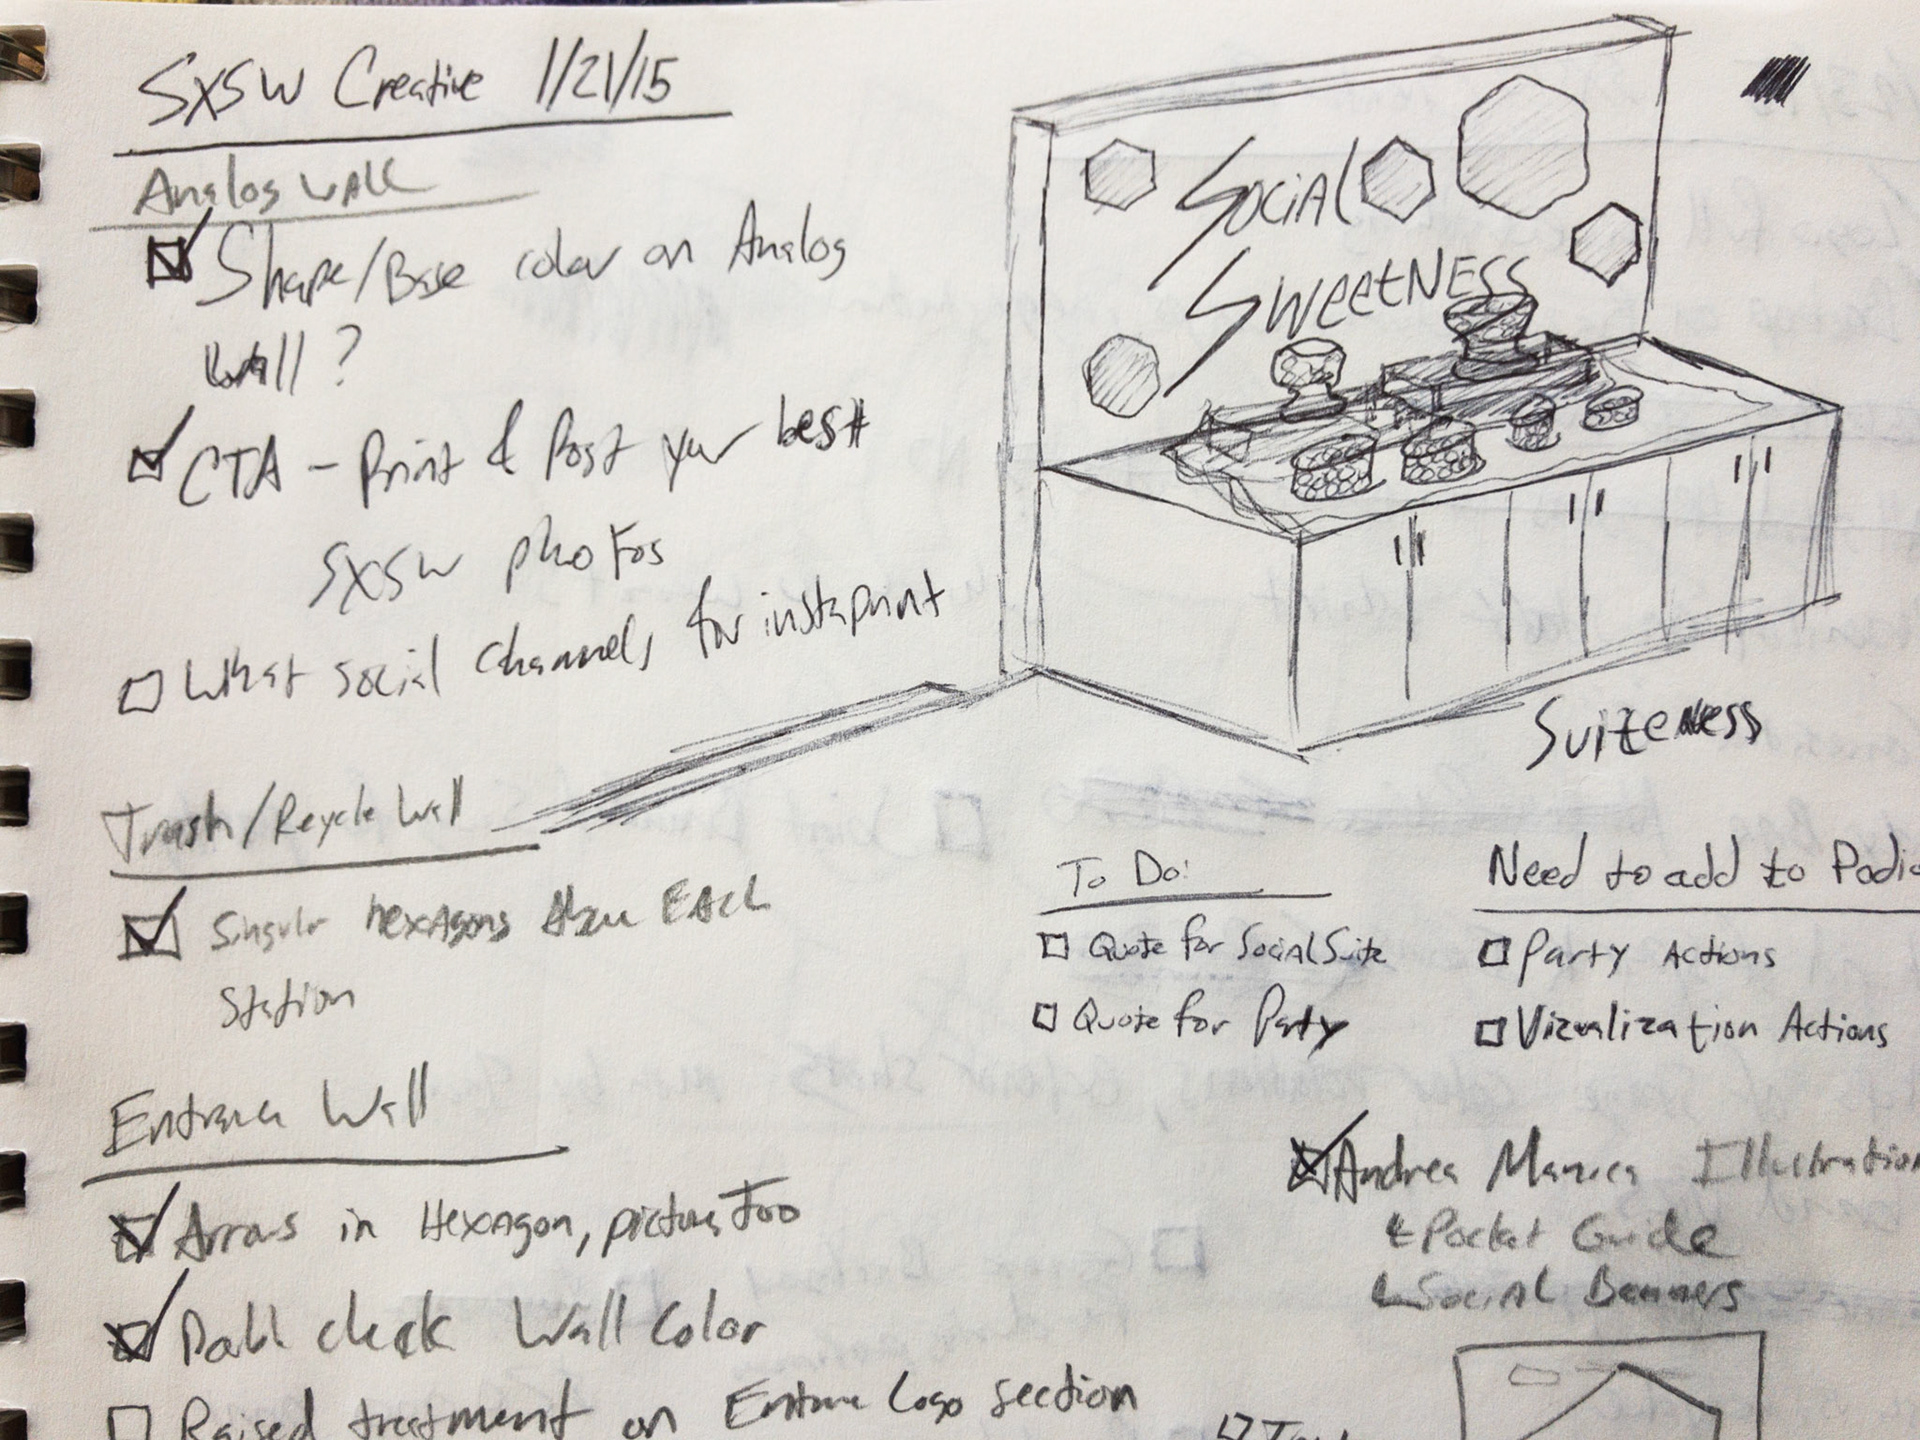 SXSW Creative 1/21/15
Analog Wall
Shape/Base color on Analog
Wall?
CTA - Print & Post your best
SXSW photos
What social channels for instaprint
Trash/Recycle Wall
Singular hexagons above EACH
Station
Entrance Wall
Arrows in Hexagon, pictures Too
Doubl check Wall Color
Raised treatment on Entrance Logo section
Social
Sweetness
Suiteness
To Do:
Quote for Social Suite
Quote for Party
Need to add to Podio
Party Actions
Vizualization Actions
Andrea Manica Illustration
Pocket Guide
Social Banners